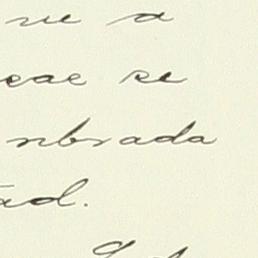 ue a
eae se
nbrada
ad.